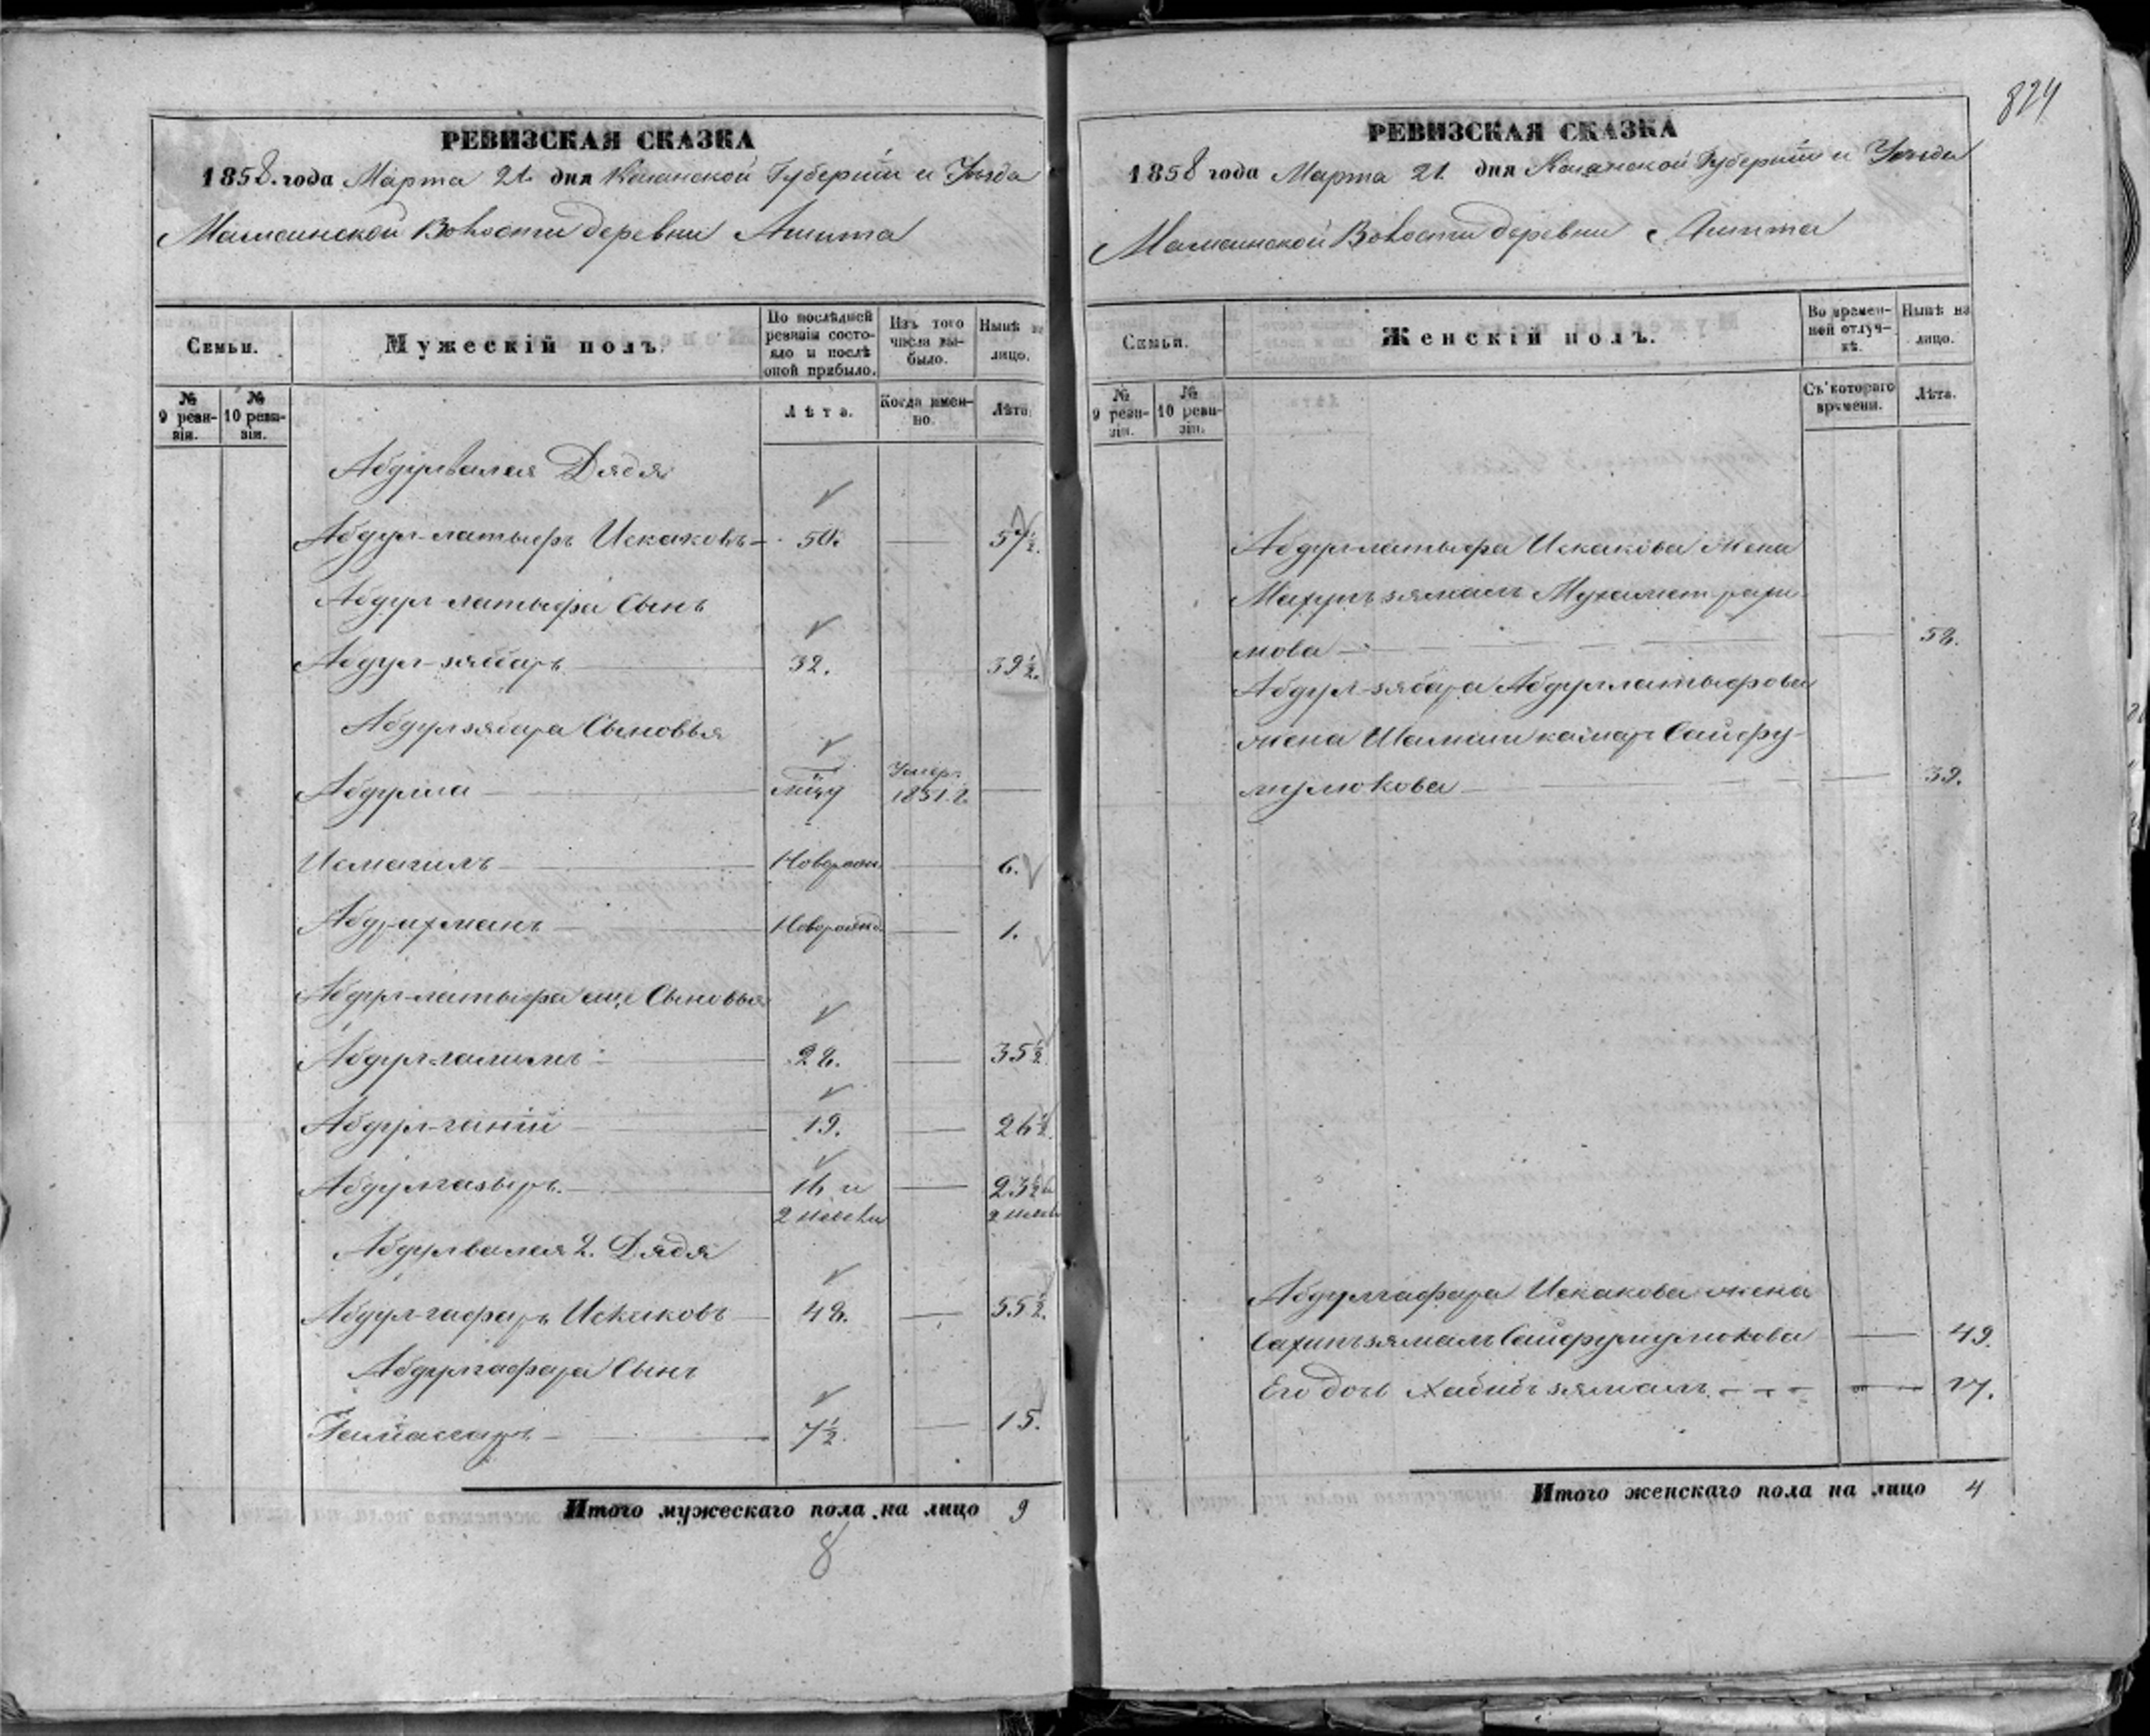 824
РЕВИЗСКАЯ СКАЗКА
1858. года Марта 21. дня Казанской Губерніи и Уѣзда
Мамсинской Волости деревни Ашита
Семьи.
Мужескій полъ.
По послѣдней ревизіи состояло и послѣ оной прибыло.
Изъ того числа выбыло.
Нынѣ на лицо.
№ 9 ревизіи.
№ 10 ревизіи.
Лѣта.
Когда именно.
Лѣта.
Абдулвалея Дядя
Абдул-латыфъ Искаковъ 50. — 57½.
Абдул-латыфа Сынъ
Абдул-зябаръ 32. 39½.
Абдулзябара Сыновья
Абдулла Умеръ 1851. г. —
Исмагилъ Новорожд — 6.
Абдрахманъ Новорожд — 1.
Абдул-латыфа еще Сыновья
Абдул-галимъ 28. — 35½
Абдул-ганій 19. — 26½
Абдулгазызъ 16 и — 23½ и
2 жены 2 жены
Абдулвалея 2. Дядя
Абдул-гафаръ Искаковъ 48. — 55½.
Абдулгафара Сынъ
7½. — 15.
Итого мужескаго пола на лицо 9
8
РЕВИЗСКАЯ СКАЗКА
1858 года Марта 21. дня Казанской Губерніи и Уѣзда
Мамсинской Волости деревни Ашита
Семьи.
Женскій полъ.
Во временной отлучкѣ.
Нынѣ на лицо.
№ 9 ревизіи.
№ 10 ревизіи.
Съ котораго времени.
Лѣта.
Абдул-латыфа Искакова жена
Махупъзямалъ Мухаметрахи-
мова — — 58.
Абдул-зябара Абдуллатыфова
жена Шамсикамаръ Сайфу-
мулюкова — — 39.
Абдулгафара Искакова жена
Сахипъзямалъ Сайфумулюкова — 49.
Его дочь Хабибъзямалъ — — 17.
Итого женскаго пола на лицо 4